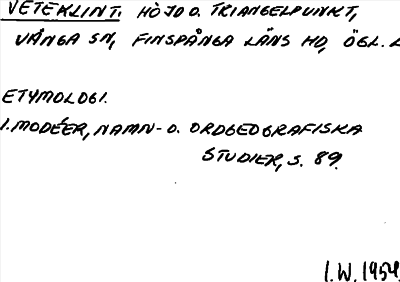 VETEKLINT. HÖJD O. TRIANGELPUNKT,
VÅNGA SN, FINSPÅNGA LÄNS HD, ÖGL. L
ETYMOLOGI.
I. MODÉER, NAMN- O. ORDGEOGRAFISKA
STUDIER, S. 89.
I.W. 1954.